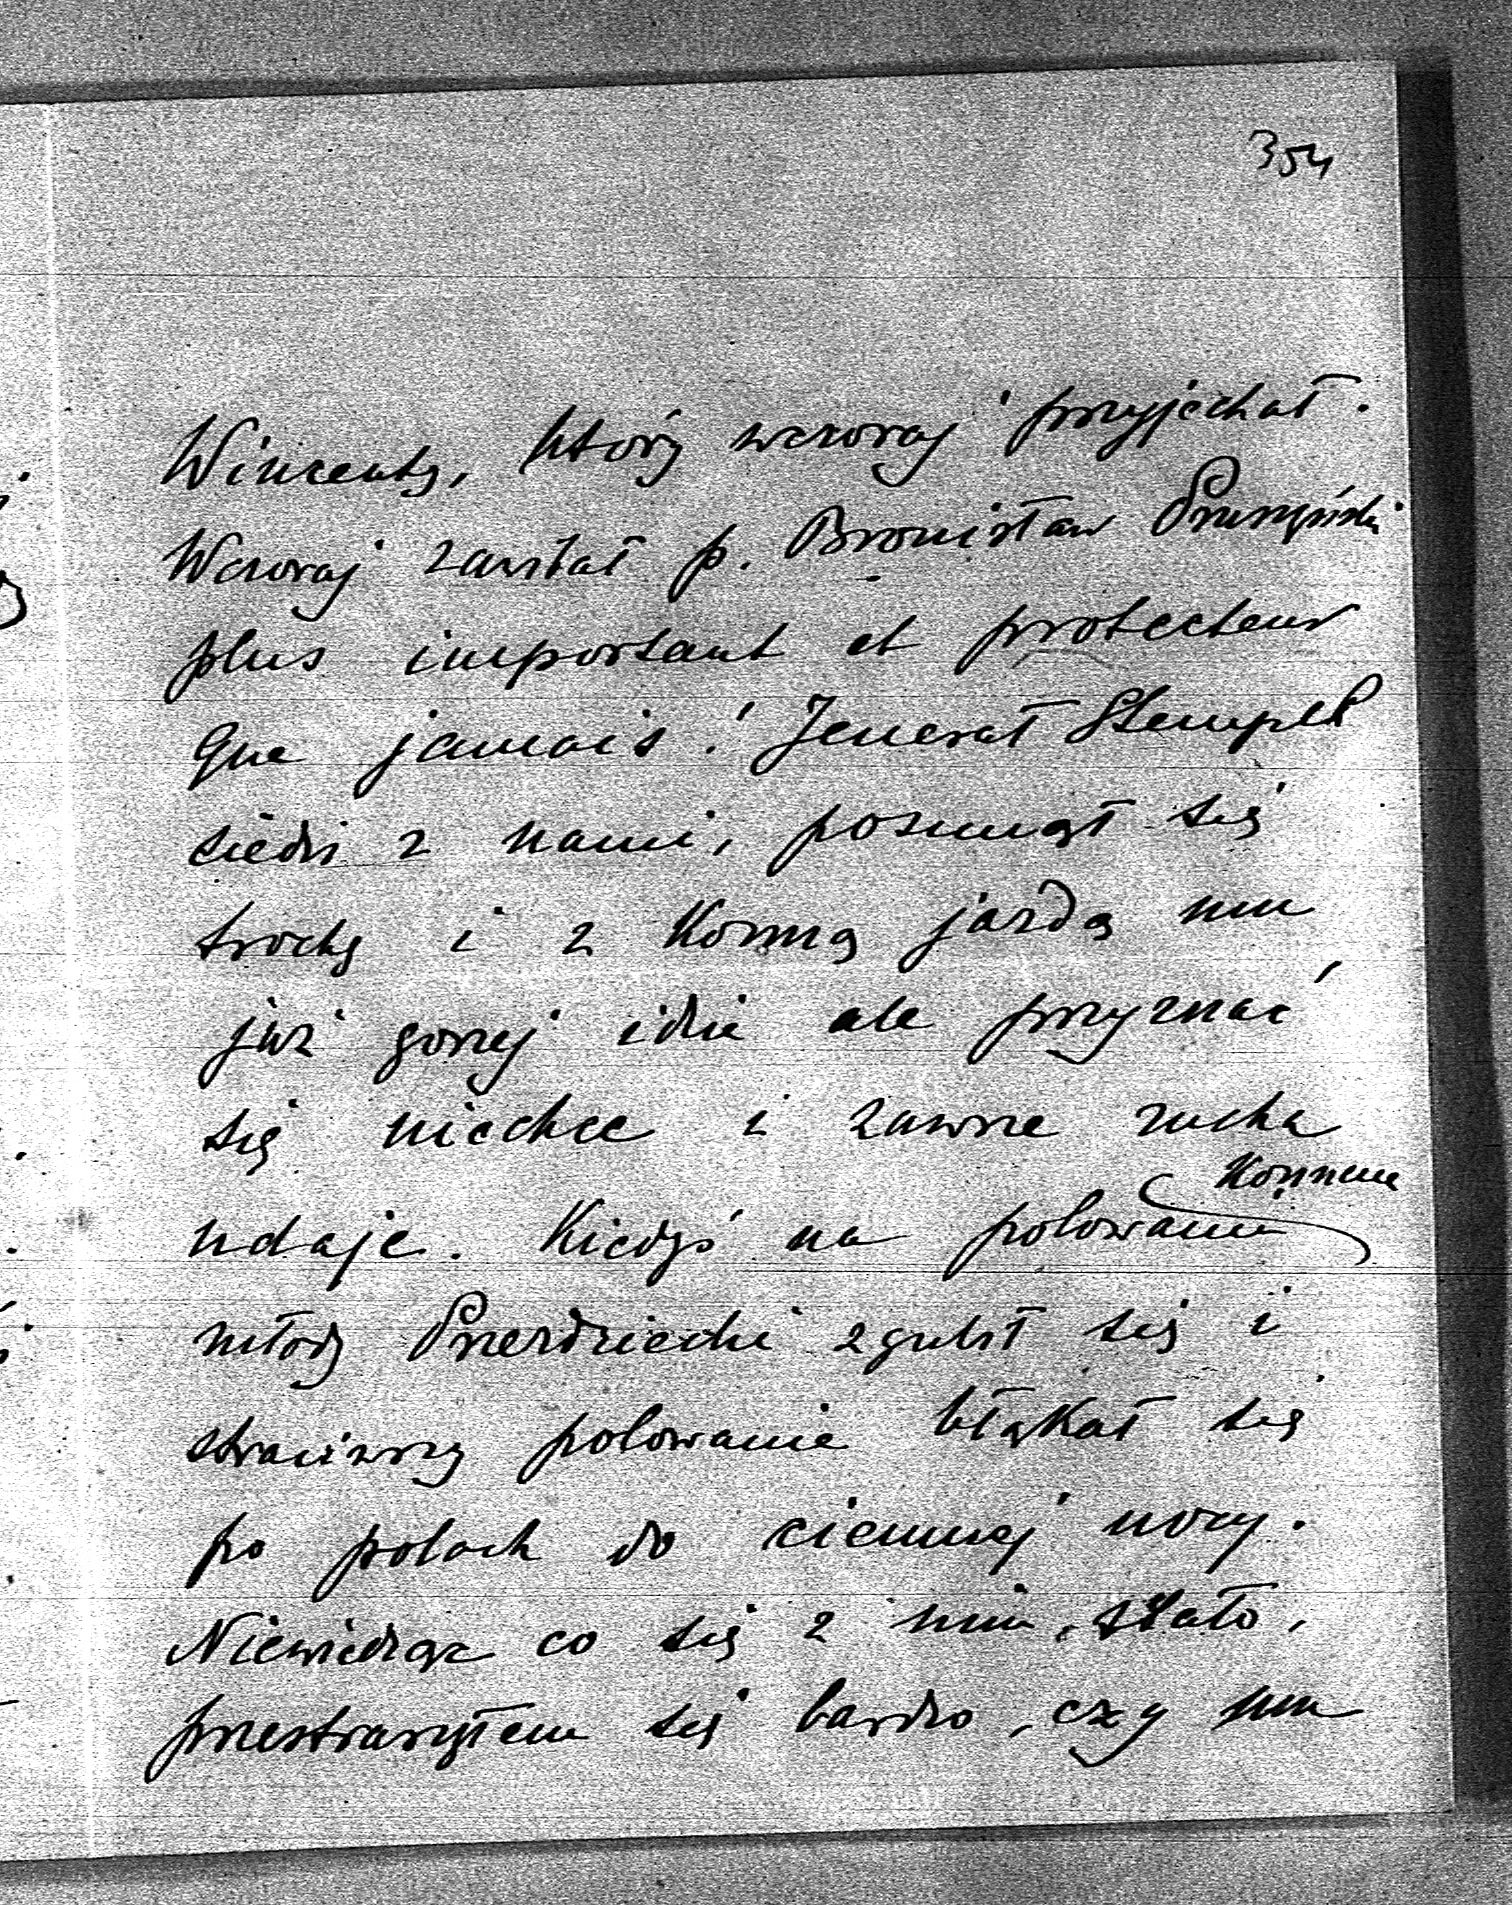 354
Wincenty, który wczoraj przyjechał.
Wczoraj zawitał p. Bronisław Pruszyński
plus important et protecteur
que jamais! Jenerał Stempel
siedzi z nami, posunął się
trochę i z konną jazdą mu
już gorzej idzie ale przyznać
się niechce i zawsze zucha
udaje. Kiedyś na polowaniu
konnem
młody Przezdziecki zgubił się i
straciwszy polowanie błąkał się
po polach do ciemnej nocy.
Niewiedząc co się z nim stało,
przestraszyłem się bardzo, czy mu